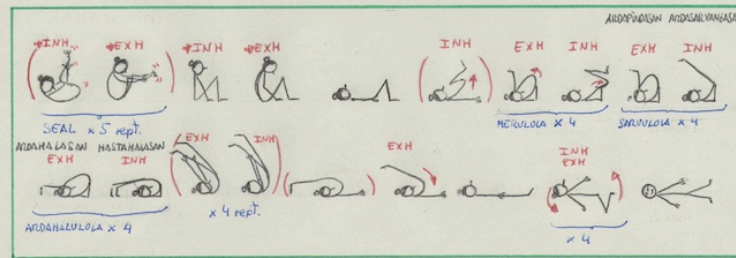 ARDAPINDASAN ARDASARVANGASA
INH EXH INH EXH INH EXH INH EXH INH
SEAL x 5 rept. MERULOLA x 4 SARVULOLA x 4
ARDAHALASAN HASTAHALASAN
EXH INH EXH INH EXH INH
EXH
ARDAHALULOLA x 4 x 4 rept. x 4